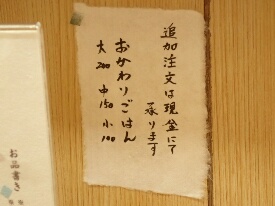 追加注文は現金にて
承ります
おかわりごはん
大200 中150 小100
お品書き